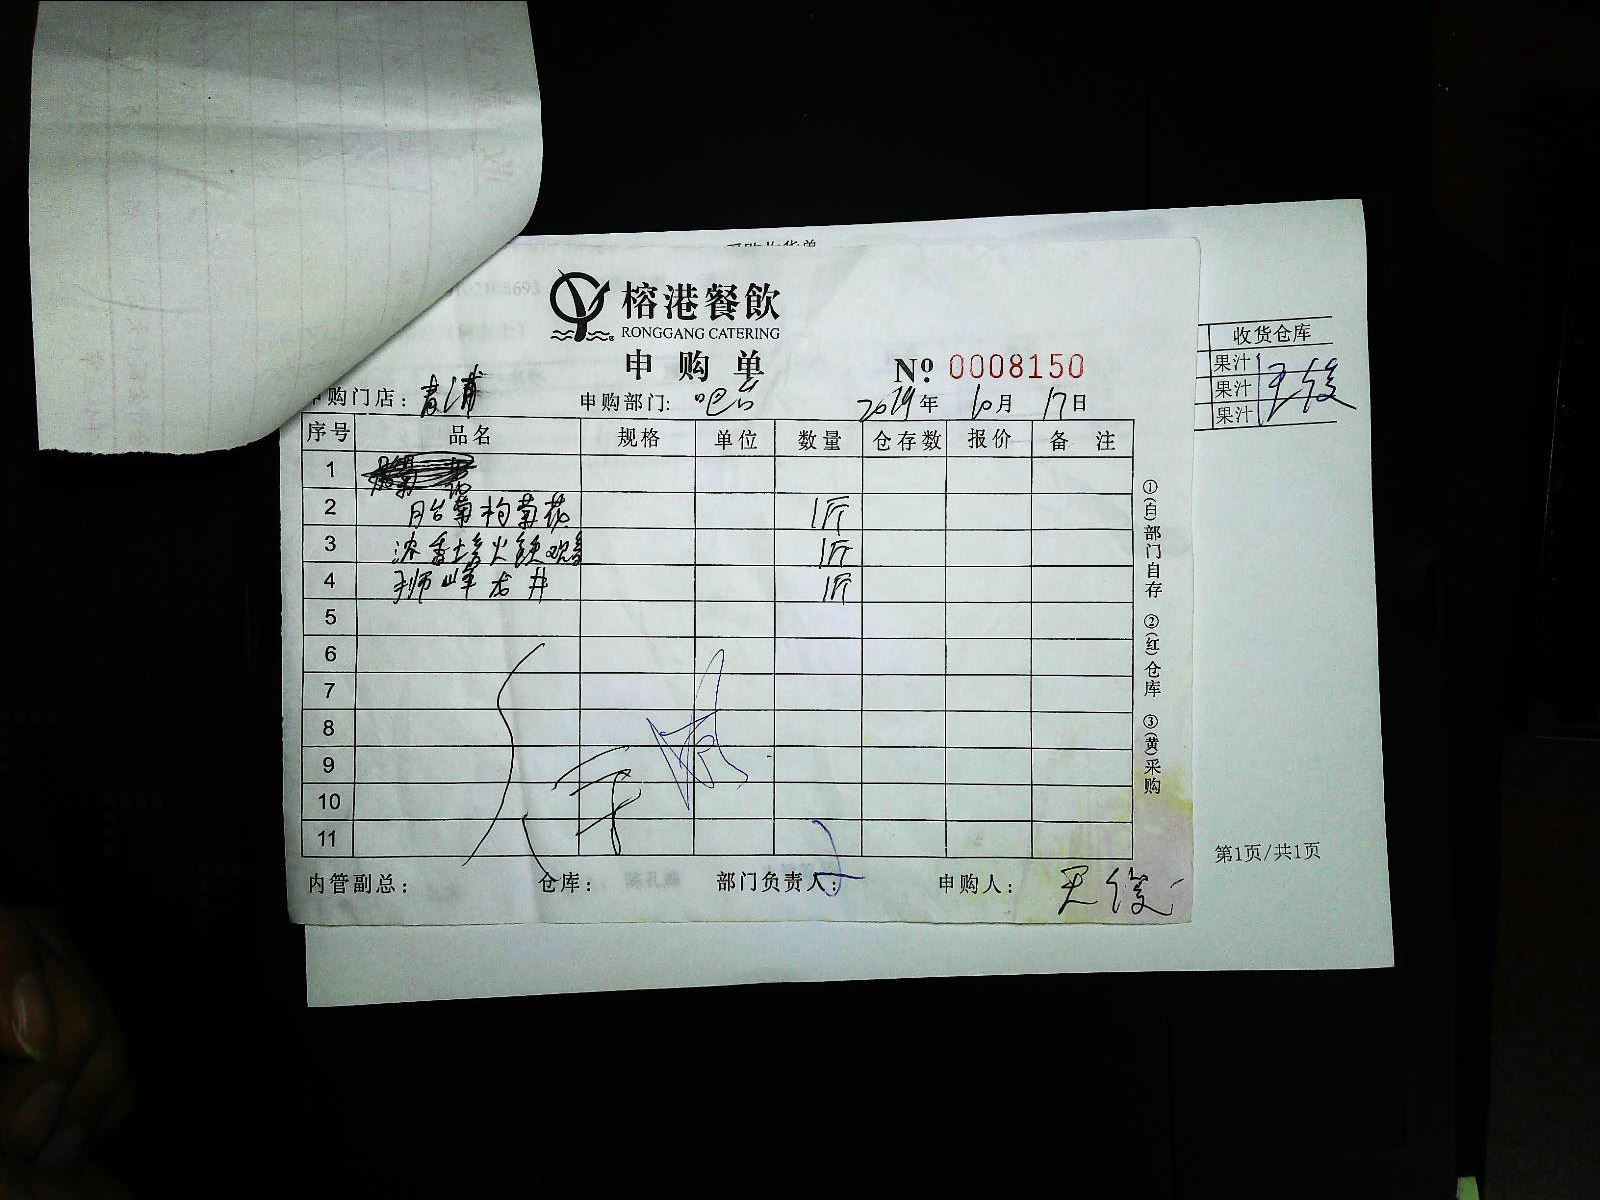 榕港餐飲
RONGGANG CATERING
申购单
№: 0008150
购门店: 青浦 申购部门: 吧台 2019年 10月 17日
序号 品名 规格 单位 数量 仓存数 报价 备注
1
2 胎菊 菊花 1斤
3 浓香 火铁观音 1斤
4 狮峰龙井 1斤
5
6
7
8
9
10
11
内管副总: 仓库: 部门负责人: 申购人: 王俊
①(白)部门自存 ②(红)仓库 ③(黄)采购
收货仓库
果汁 王俊
果汁
果汁
第1页/共1页